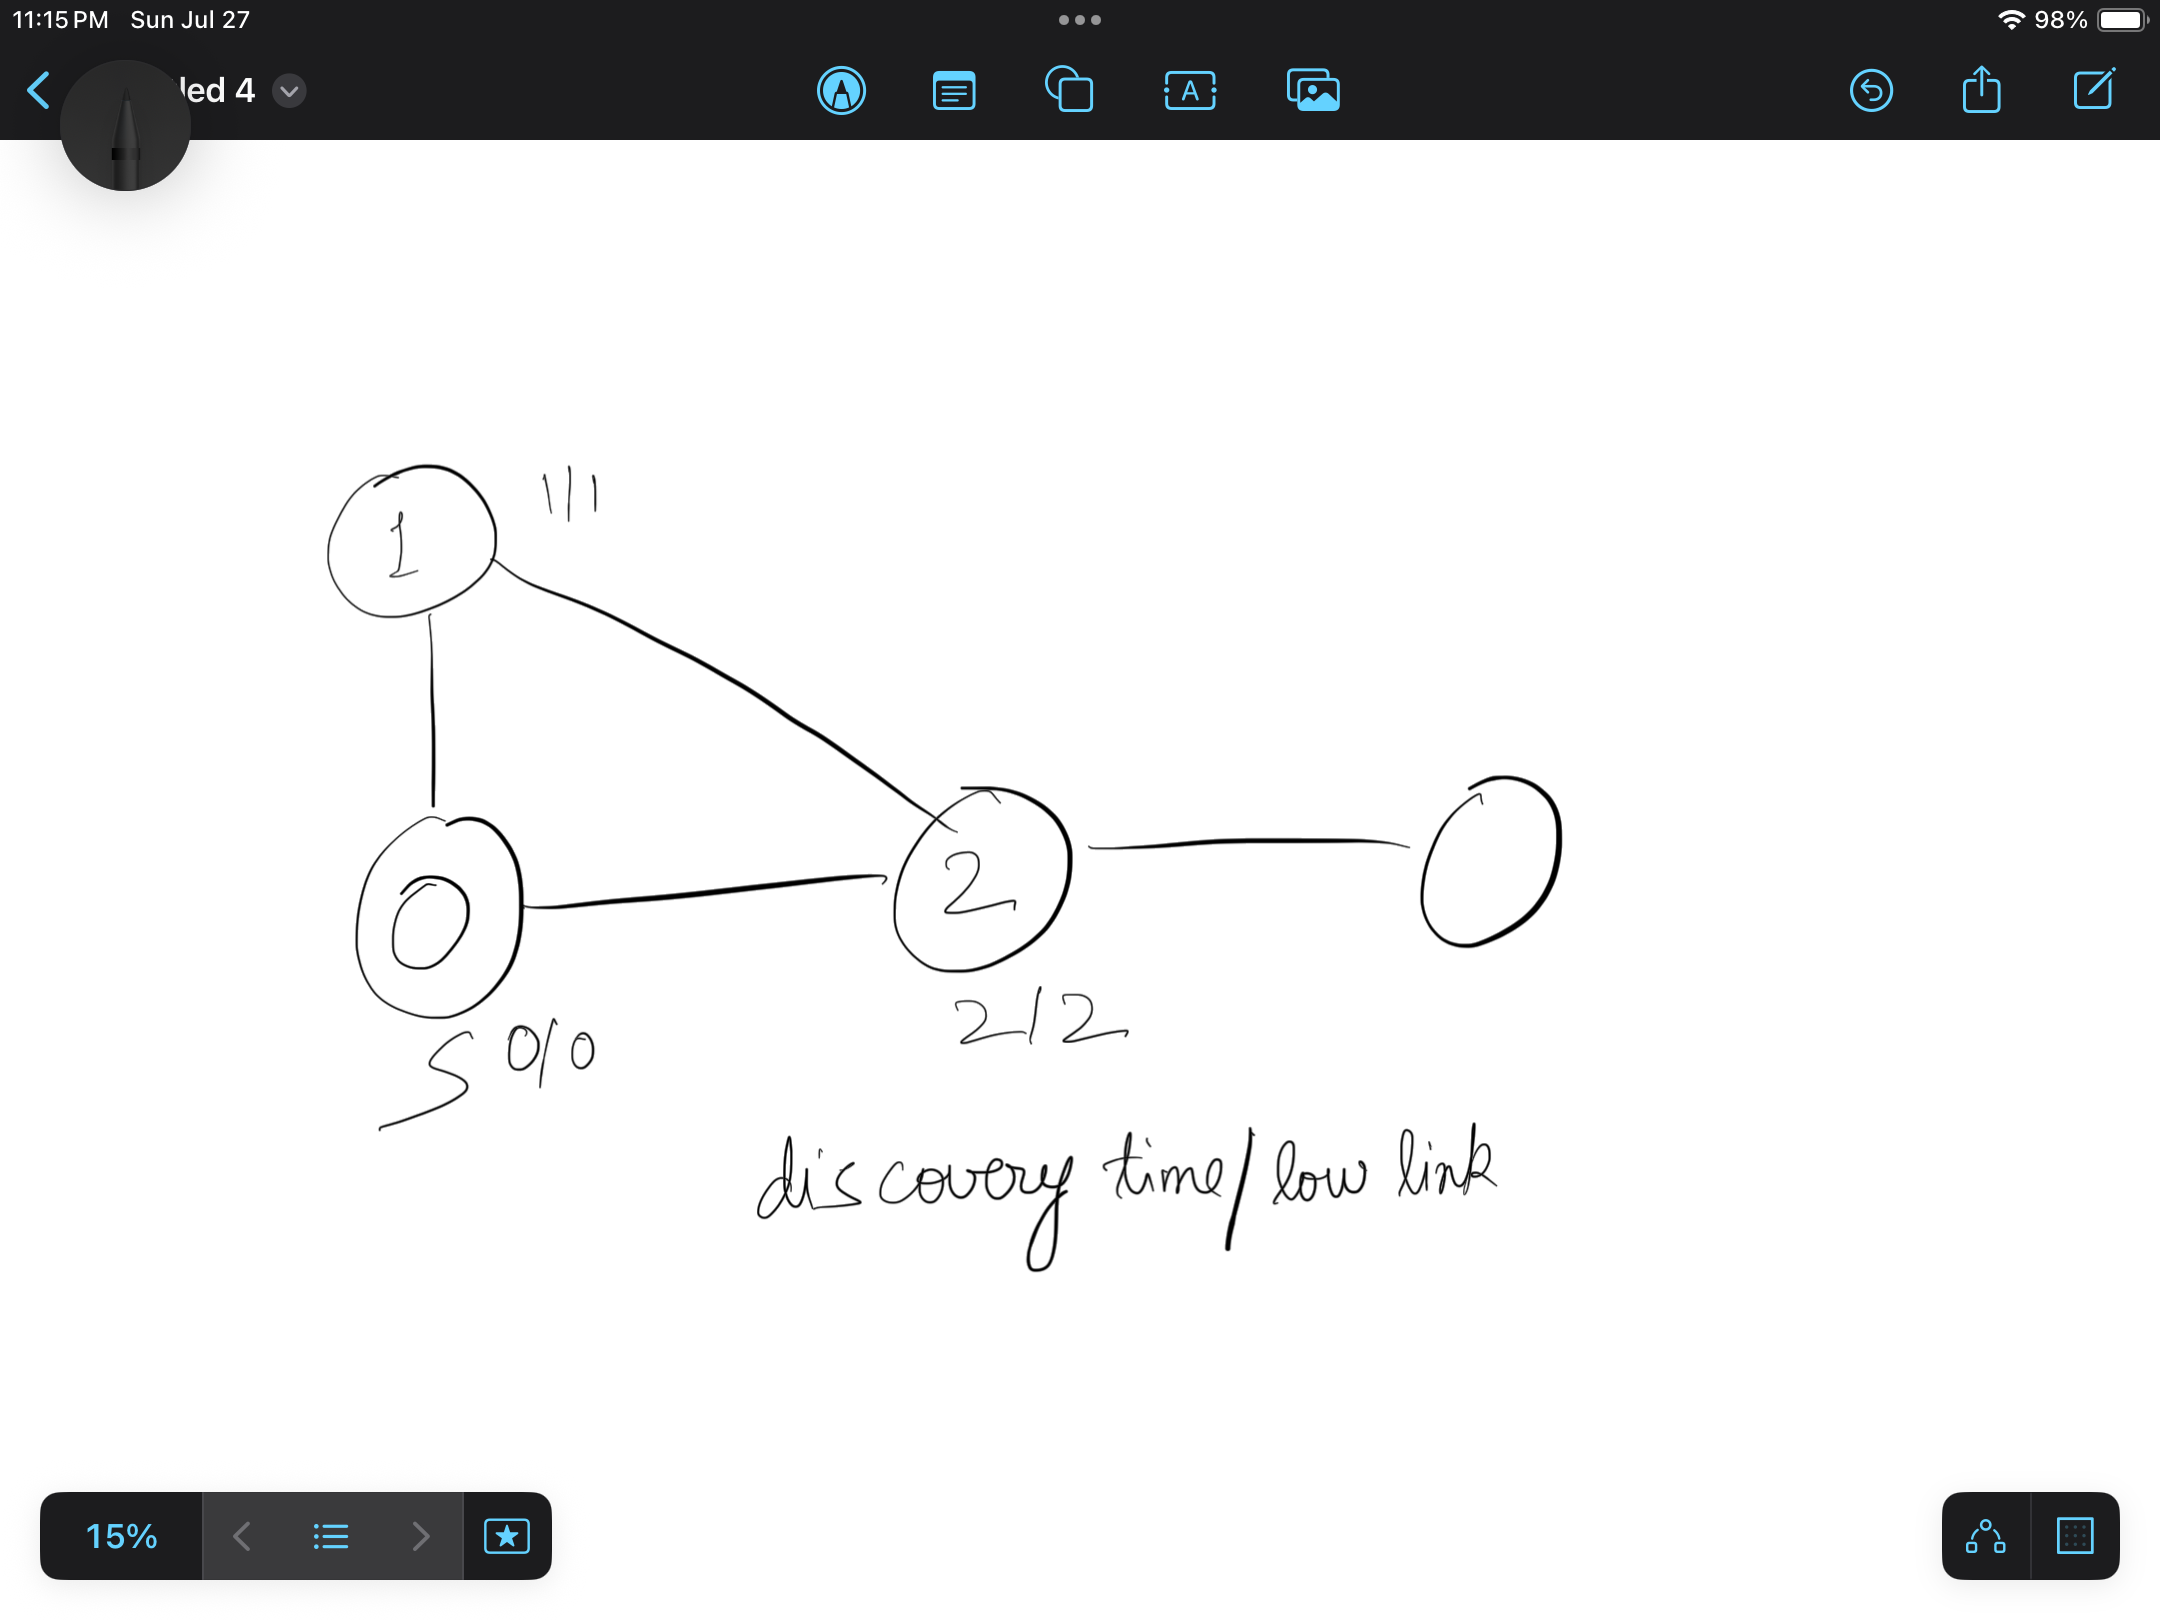 11:15 PM Sun Jul 27
98%
led 4
A
1
1/1
0
2
S 0/0
2/2
discovery time/low link
15%